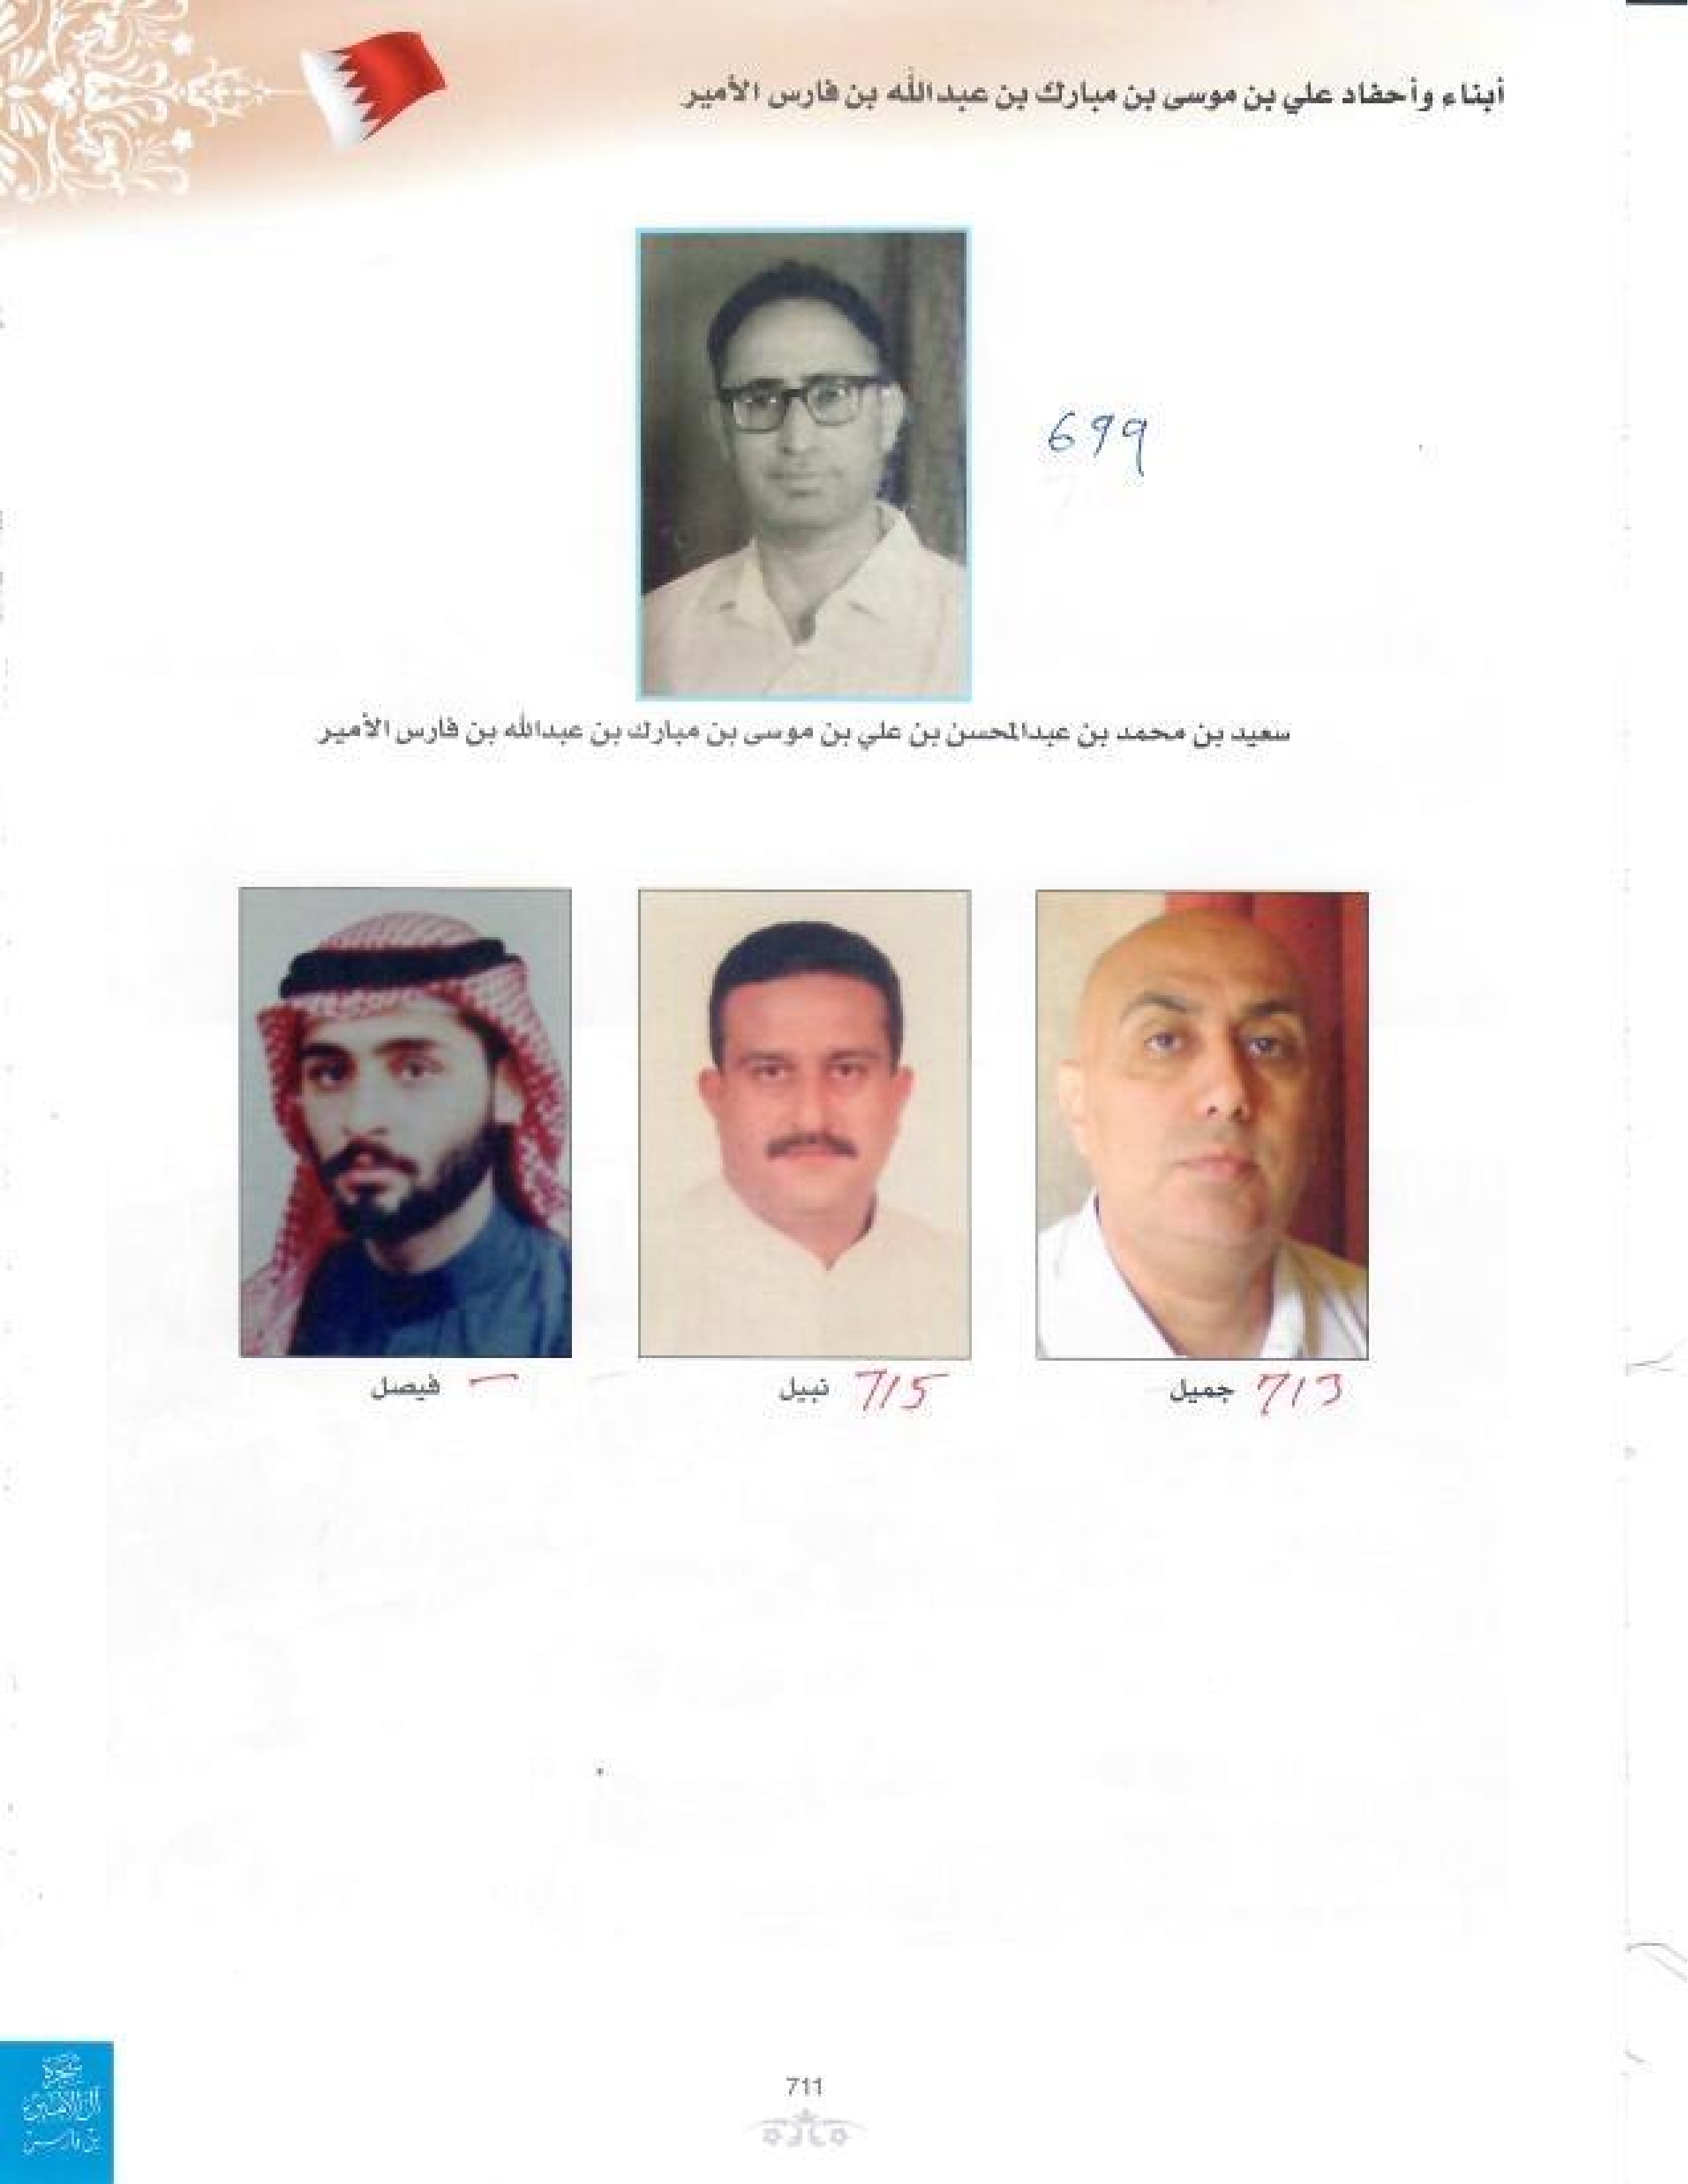 أبناء وأحفاد علي بن موسى بن مبارك بن عبدالله بن فارس الأمير
699
سعيد بن محمد بن عبدالمحسن بن علي بن موسى بن مبارك بن عبدالله بن فارس الأمير
جميل 713
نبيل 715
فيصل –
711
شجرة
آل الأمير
بن فارس